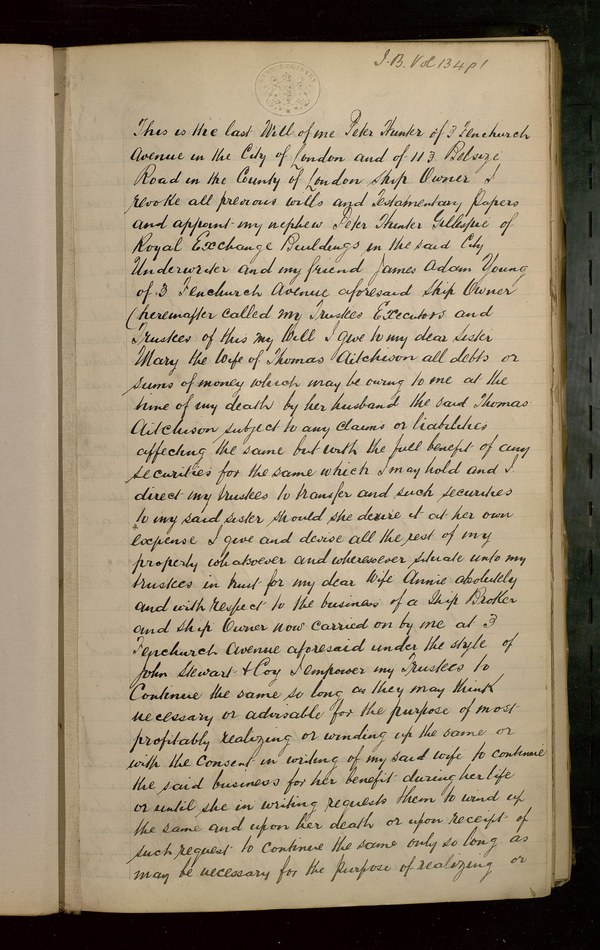 J.B. Vol 134 p1
This is the last Will of me Peter Hunter of 3 Fenchurch
Avenue in the City of London and of 113 Belsize
Road in the County of London Ship Owner I
revoke all previous wills and Testamentary Papers
and appoint my nephew Peter Hunter Gillespie of
Royal Exchange Buildings in the said City
Underwriter and my friend James Adam Young
of 3 Fenchurch Avenue aforesaid Ship Owner
(hereinafter called my Trustees Executors and
Trustees of this my Will I give to my dear sister
Mary the Wife of Thomas Aitchison all debts or
sums of money which may be owing to me at the
time of my death by her husband the said Thomas
Aitchison subject to any claims or liabilities
affecting the same but with the full benefit of any
securities for the same which I may hold and I
direct my trustees to transfer and such securities
to my said sister should she desire it at her own
expense I give and devise all the rest of my
property whatsoever and wheresoever situate unto my
trustees in trust for my dear wife Annie absolutely
and with respect to the business of a Ship Broker
and Ship Owner now carried on by me at 3
Fenchurch Avenue aforesaid under the style of
John Stewart & Coy I empower my Trustees to
Continue the same so long as they may think
necessary or advisable for the purpose of most
profitably realizing or winding up the same or
with the consent in writing of my said wife to continue
the said business for her benefit during her life
or until she in writing requests them to wind up
the same and upon her death or upon receipt of
such request to continue the same only so long as
may be necessary for the purpose of realizing or